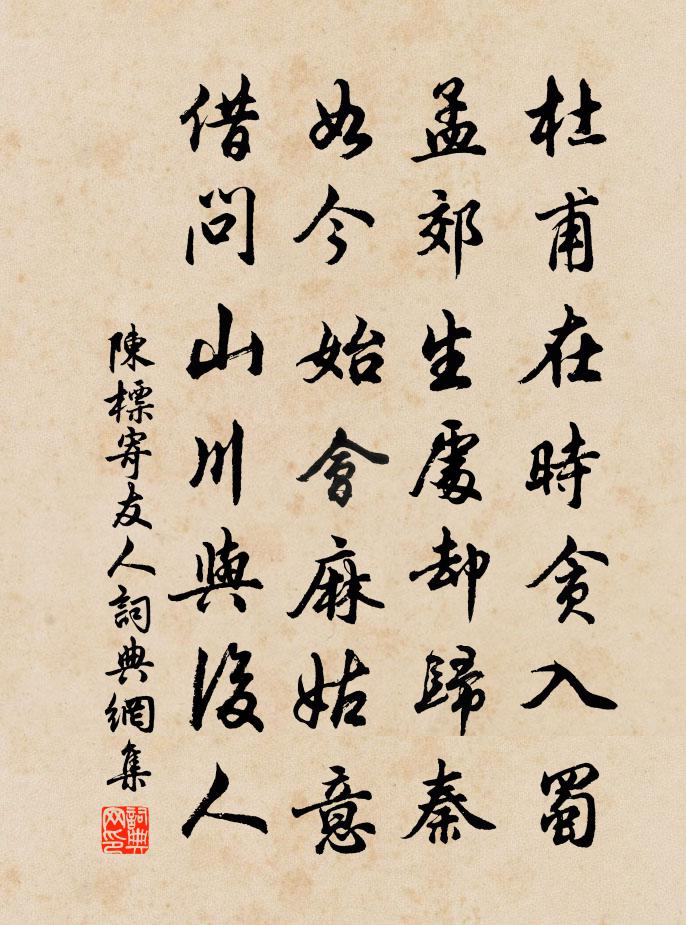 杜甫在時貪入蜀
孟郊生處却歸秦
如今始會麻姑意
借問山川與後人
陳標寄友人詞典網集
詞典网印